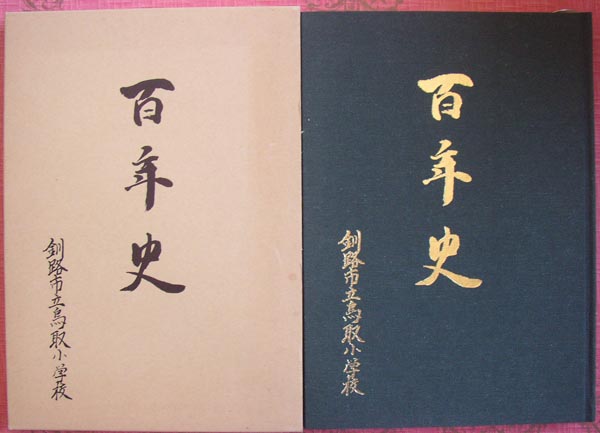 百年史
釧路市立鳥取小学校
百年史
釧路市立鳥取小学校